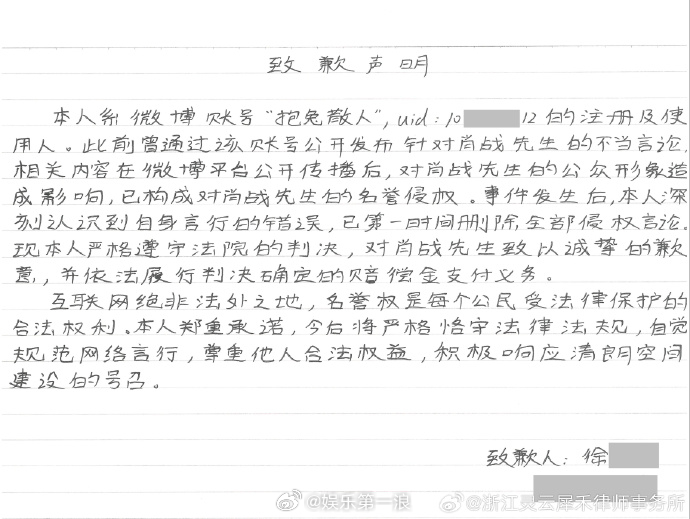 致歉声明
本人系微博账号"抱兔散人",uid:10 12的注册及使
用人。此前曾通过该账号公开发布针对肖战先生的不当言论,
相关内容在微博平台公开传播后,对肖战先生的公众形象造
成影响,已构成对肖战先生的名誉侵权。事件发生后,本人深
刻认识到自身言行的错误,已第一时间删除全部侵权言论。
现本人严格遵守法院的判决,对肖战先生致以诚挚的歉
意,并依法履行判决确定的赔偿金支付义务。
互联网络非法外之地,名誉权是每个公民受法律保护的
合法权利。本人郑重承诺,今后将严格恪守法律法规,自觉
规范网络言行,尊重他人合法权益,积极响应清朗空间
建设的号召。
致歉人:徐
@娱乐第一浪 @浙江灵云犀禾律师事务所